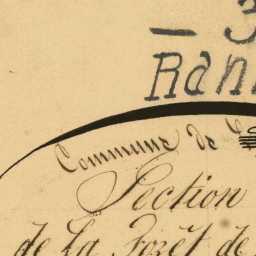 — 3
Ran
Commune de
Section
de La Forêt de